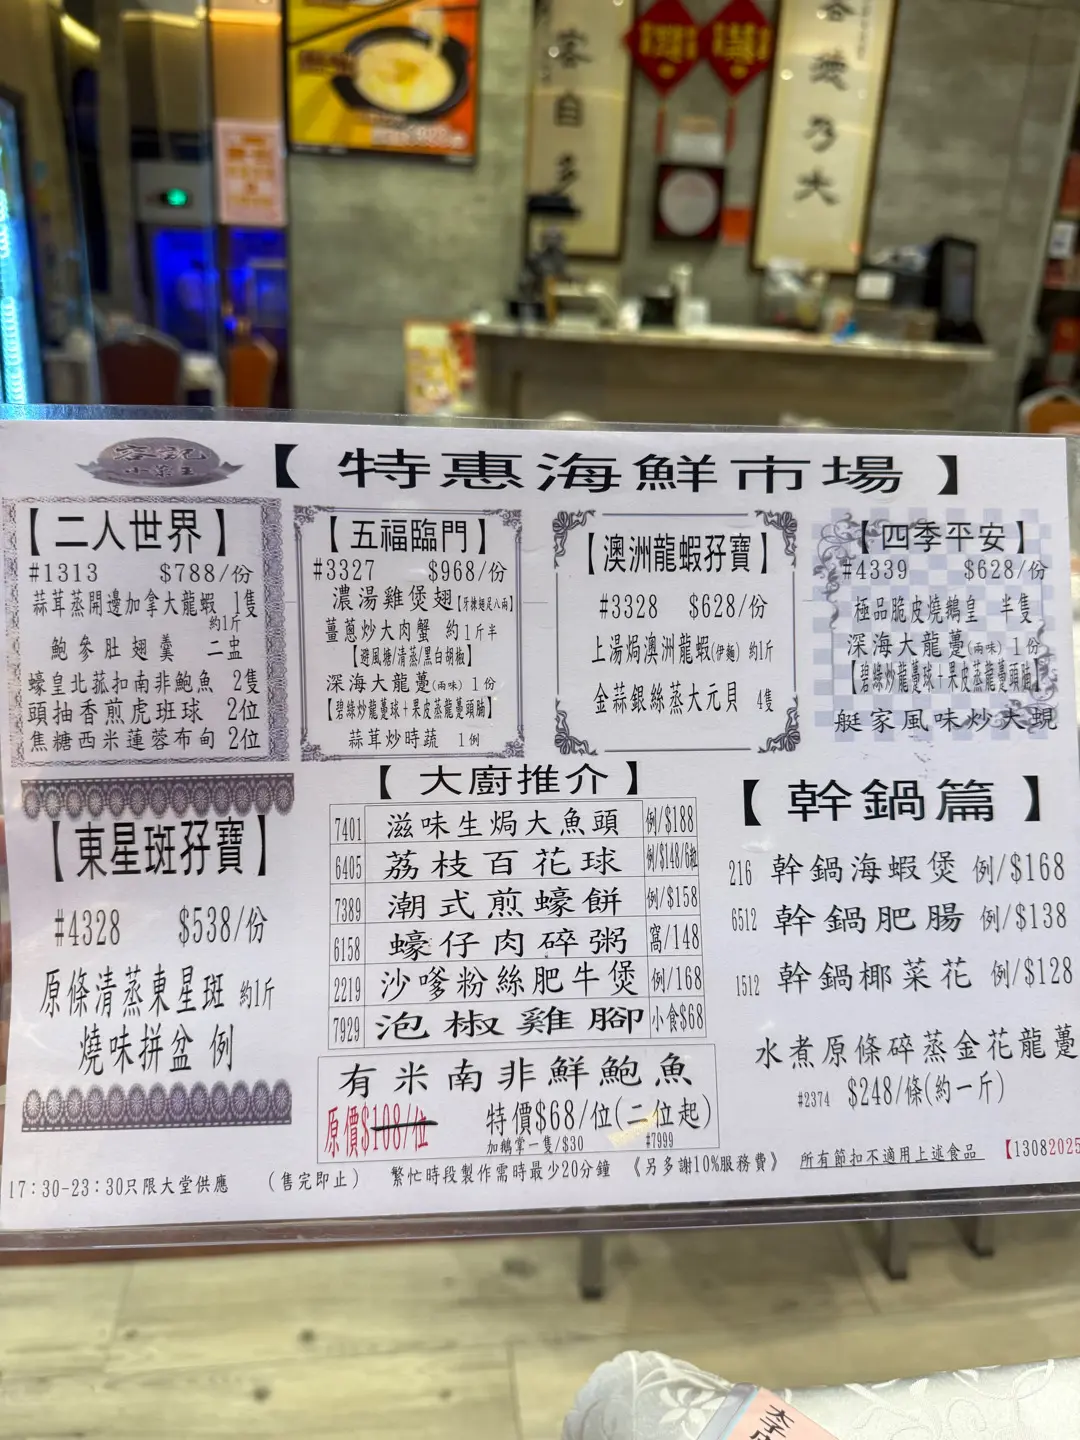 客自多
德乃大
容記
小菜王
【特惠海鮮市場】
【二人世界】
#1313 $788/份
蒜茸蒸開邊加拿大龍蝦 1隻
約1斤
鮑參肚翅羹 二盅
蠔皇北菰扣南非鮑魚 2隻
頭抽香煎虎班球 2位
焦糖西米蓮蓉布甸 2位
【五福臨門】
#3327 $968/份
濃湯雞煲翅【牙揀翅足八兩】
薑蔥炒大肉蟹 約1斤半
【避風塘/清蒸/黑白胡椒】
深海大龍躉(兩味) 1份
【碧綠炒龍躉球+果皮蒸龍躉頭腩】
蒜茸炒時蔬 1例
【澳洲龍蝦孖寶】
#3328 $628/份
上湯焗澳洲龍蝦(伊麵) 約1斤
金蒜銀絲蒸大元貝 4隻
【四季平安】
#4339 $628/份
極品脆皮燒鵝皇 半隻
深海大龍躉(兩味) 1份
【碧綠炒龍躉球+果皮蒸龍躉頭腩】
艇家風味炒大蜆
【東星斑孖寶】
#4328 $538/份
原條清蒸東星斑 約1斤
燒味拼盆 例
【大廚推介】
7401 滋味生焗大魚頭 例/$188
6405 荔枝百花球 例/$148/6粒
7389 潮式煎蠔餅 例/$158
6158 蠔仔肉碎粥 窩/148
2219 沙嗲粉絲肥牛煲 例/168
7929 泡椒雞腳 小食$68
有米南非鮮鮑魚
原價$108/位 特價$68/位(二位起)
加鵝掌一隻/$30 #7999
【幹鍋篇】
216 幹鍋海蝦煲 例/$168
6512 幹鍋肥腸 例/$138
1512 幹鍋椰菜花 例/$128
水煮原條碎蒸金花龍躉
#2374 $248/條(約一斤)
17:30-23:30只限大堂供應 (售完即止) 繁忙時段製作需時最少20分鐘 《另多謝10%服務費》 所有節扣不適用上述食品 【13082025